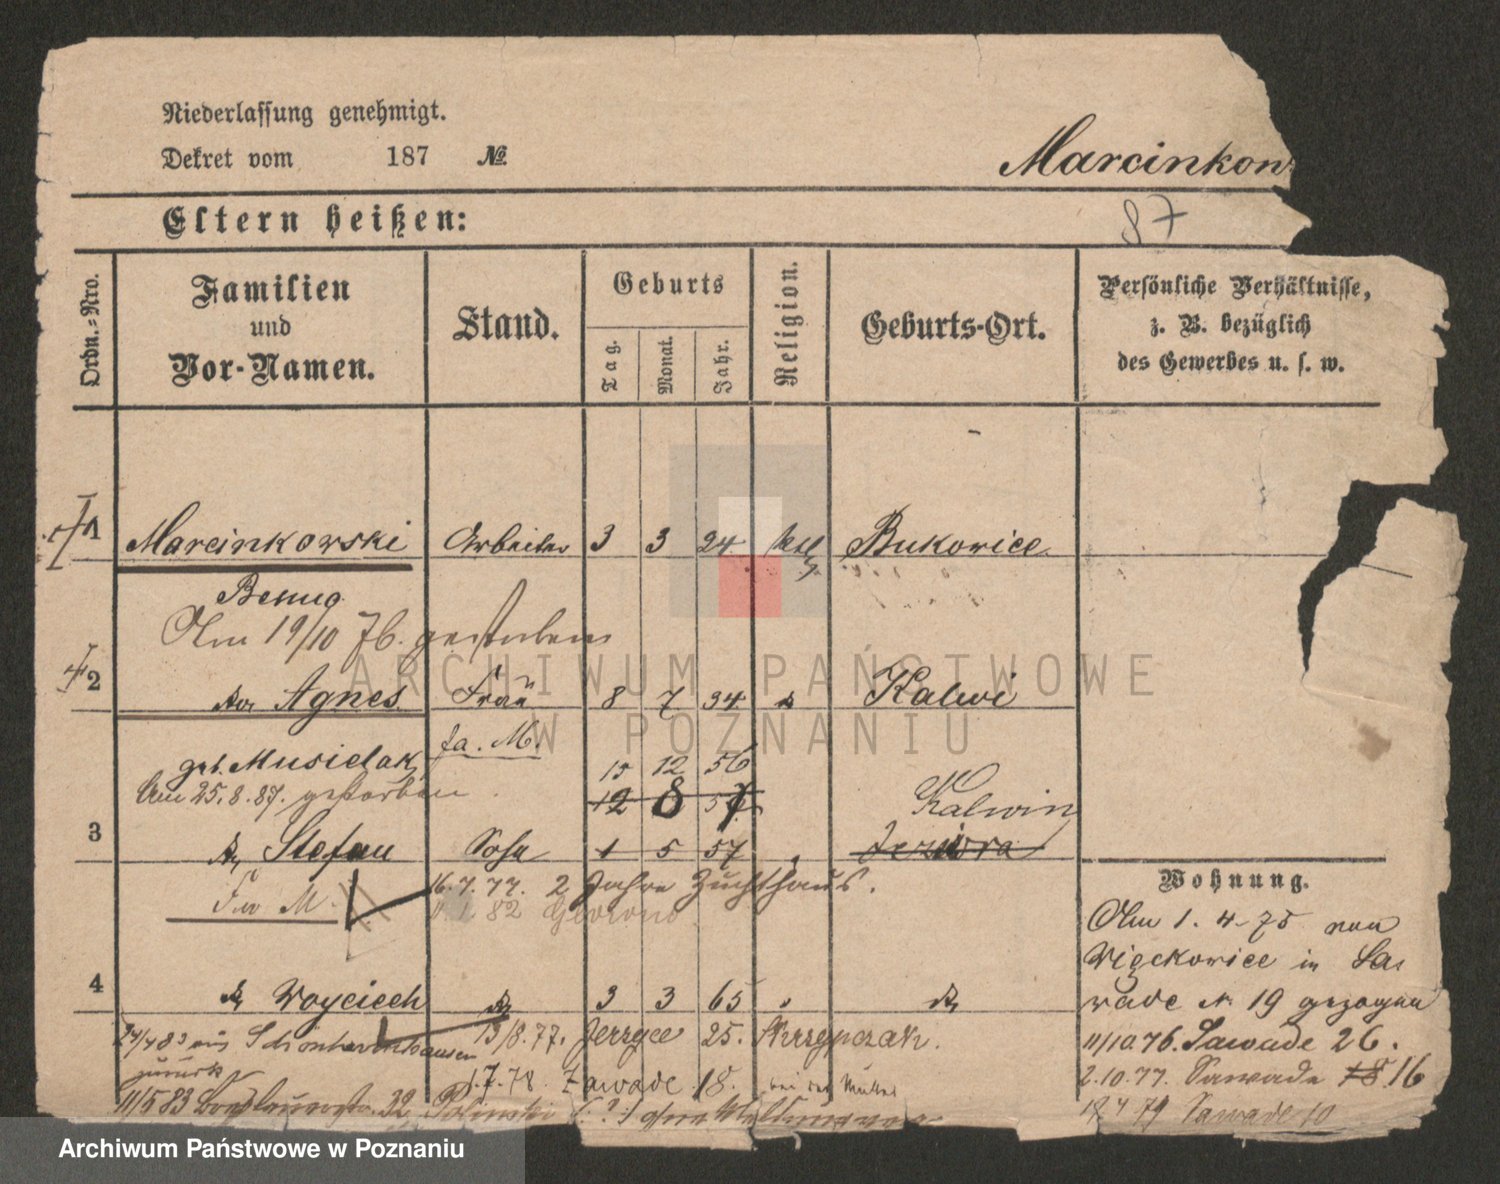 Niederlassung genehmigt.
Dekret vom 187 №
Marcinkow
Eltern heißen:
87
Ordn.-Nro.
Familien
und
Vor-Namen.
Stand.
Geburts
Tag.
Monat.
Jahr.
Religion.
Geburts-Ort.
Persönliche Verhältnisse,
z. B. bezüglich
des Gewerbes u. s. w.
1 Marcinkowski Arbeiter 3 3 24 Bukowice
Am 19/10 76. gestorben
ARCHIWUM PAŃSTWOWE
2 Agnes Frau 8 7 34 Kalwi
W POZNANIU
geb. Musielak fa. M.
15 12 56
Am 25.8.87. gestorben
12 8 Kalwin
3 Stefan Sohn 1 5 57
Wohnung.
16.7.77. 2 Jahre Zuchthaus.
F M. 82
Am 1. 4. 75 von
Więckowice in Sa-
4 Woyciech 3 3 65
wade № 19 gezogen
24/4 83 aus Schönherrnhausen 13/8.77. Jerzyce 25. Skrzypczak.
11/10.76. Sawade 26.
zurück
1.7.78. Zawade 18. bei der Mutter
2.10.77. Sawade 18 16
11/5 83 32
4 79 Sawade 10
Archiwum Państwowe w Poznaniu